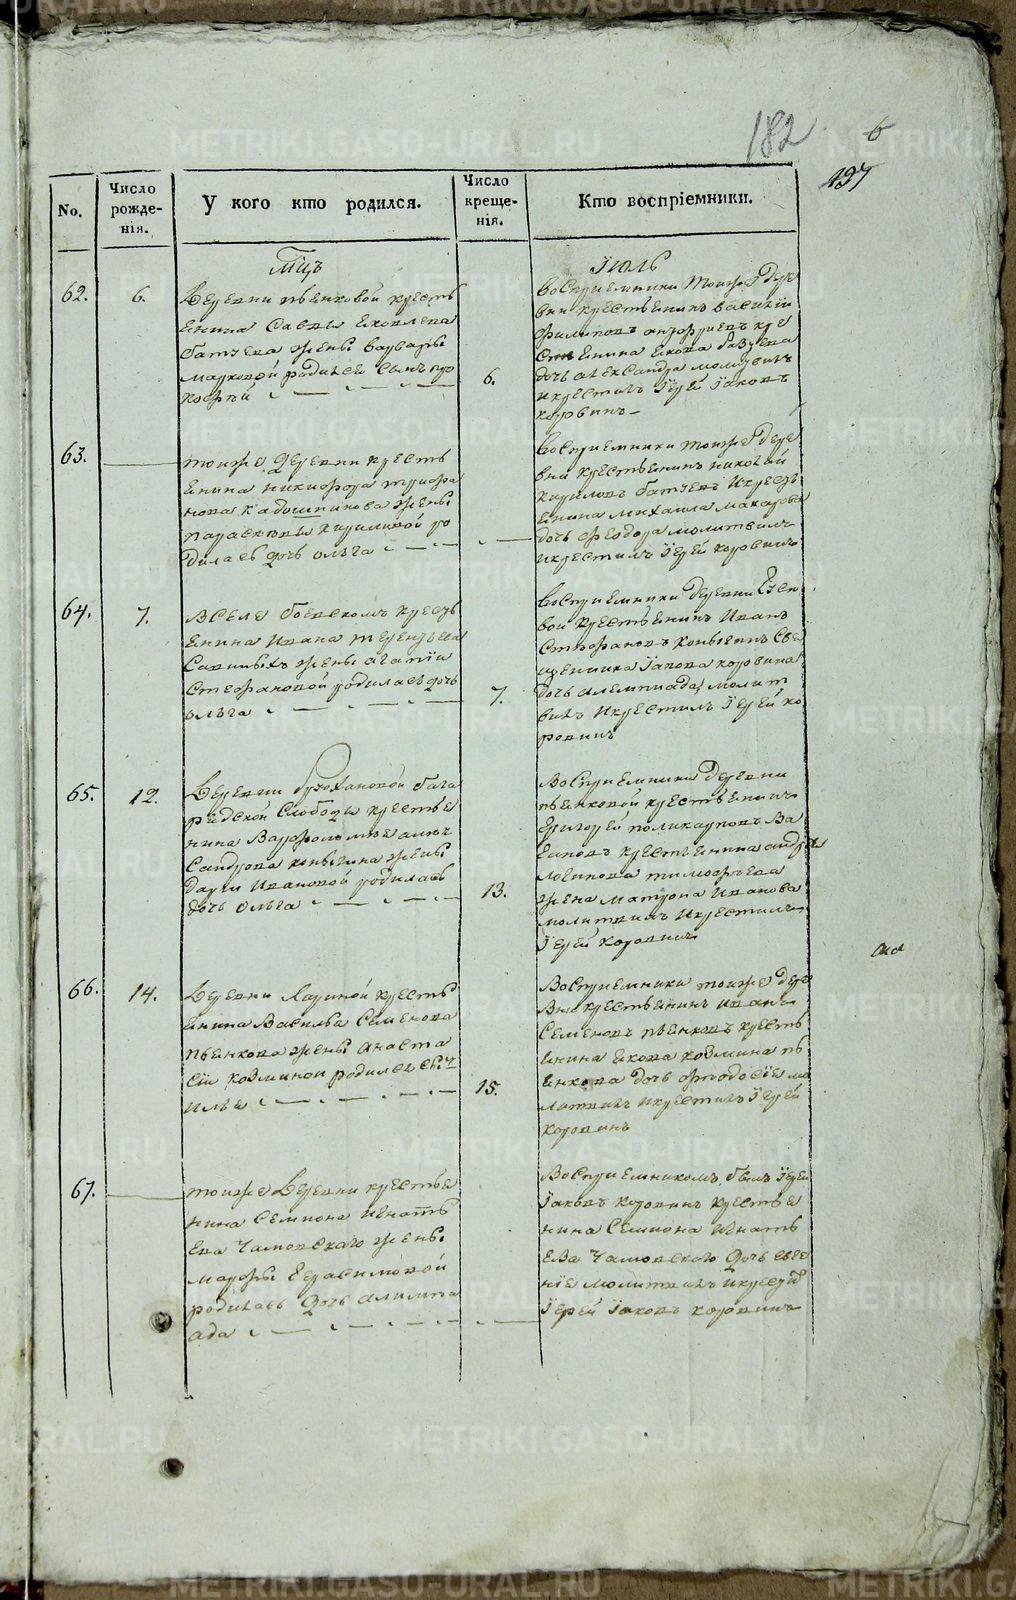 182
6
197
No.
Число рожде- нія.
У кого кто родился.
Число креще- нія.
Кто воспріемники.
Мцъ
Іюль
62.
6.
Деревни пьенковой кресть
янина Саввы Яковлева
батуева жены варвары
марковой родился сынъ про
кофей
6.
воспріемники тоиже дере
вни крестьянинъ василій
филиповъ
янина Якова
дочь александра молитвилъ
икрестилъ Іерей Іаковъ
коровинъ
63.
тоиже деревни кресть
янина никифора трифа
нова кадошникова жены
параскевы кириловой ро
дилась дочь олга
воспріемники тоиже дере
вни крестьянинъ николай
кириловъ батуевъ икресть
янина михаила макарова
дочь феодора молитвилъ
икрестилъ Іерей коровинъ
64.
7.
Вселе боевскомъ кресть
янина Ивана терентьева
Савиныхъ жены агапіи
Стефановой родилась дочь
олга
7.
воспріемники деревни
вой крестьянинъ Иванъ
Стефановъ конывинъ Свя
щенника Іакова коровина
дочь алемпиада молит
вилъ Икрестилъ Іерей ко
ровинъ
65.
12.
Деревни бага
рядской Слободы крестья
нина Варфоломея алек
Сандрова жены
дарьи Ивановой родилась
дочь олга
13.
воспріемники деревни
пьенковой крестьянинъ
Григорей поликарповъ
крестьянина андрея
логинова тимофѣева
жена матрона Иванова
молитвилъ Икрестилъ
Іерей коровинъ
66.
14.
Деревни Лариной кресть
янина Василья Семенова
пьенкова жены анаста
сіи козминой родился сынъ
илья
15.
Воспріемники тоиже дере
вни крестьянинъ Иванъ
Семеновъ пьенковъ кресть
янина Якова козмина пь
енкова дочь феодосія мо
литвилъ Икрестилъ Іерей
коровинъ
67.
тоиже Деревни крестья
нина Семиона Игнатъ
ева Чамовскаго жены
марфы Герасимовой
родилась дочь алимпи
ада
Воспріемникомъ былъ Іерей
Іаковъ коровинъ крестья
нина Семиона Игнатъ
ева Чамовскаго дочь евге
нія молитвилъ икрестилъ
Іерей Іаковъ коровинъ
METRIKI.GASO-URAL.RU